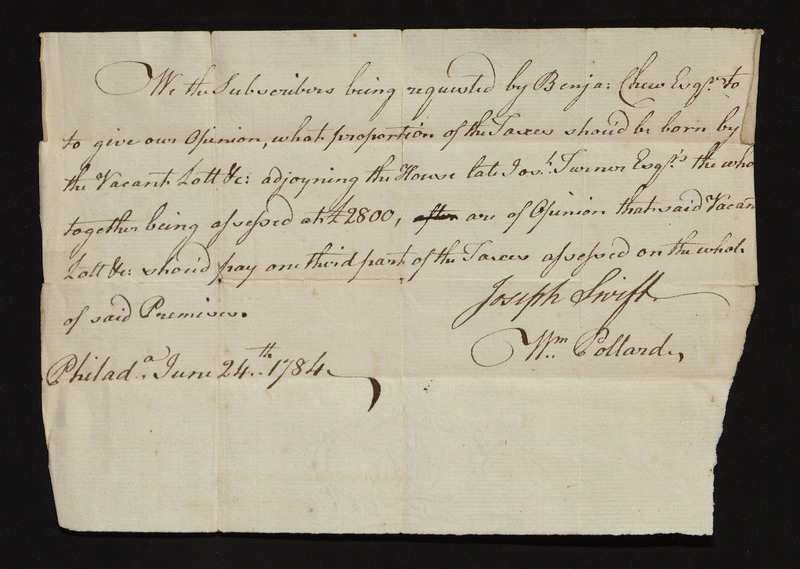 We the Subscribers being requested by Benja: Chew Esqr. to
to give our Opinion, what proportion of the Taxes should be born by
the Vacant Lott &c: adjoyning the House late Jos.h Turner Esqr's the who
together being assessed at £2800, after are of Opinion that said Vacan
Lott &c: should pay one third part of the Taxes assessed on the whole
of said Premises.
Joseph Swift
Wm Pollard,
Philad.a June 24th. 1784.